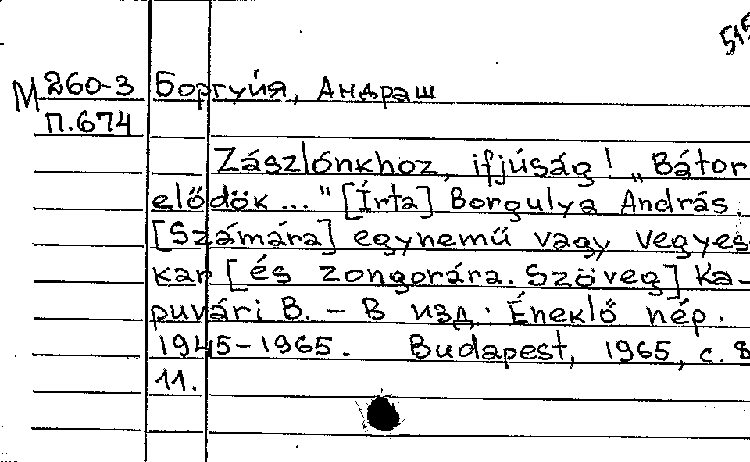 515
М 260-3 Боргуйя, Андраш
П.674
Zászlónkhoz, ifjúság! „Bátor
elődök..." [Írta] Borgulya András.
[Számára] egynemű vagy vegyes
kar [és zongorára. Szöveg] Ka-
puvári B. – В изд. Éneklő nép.
1945-1965. Budapest, 1965, с. 8
11.